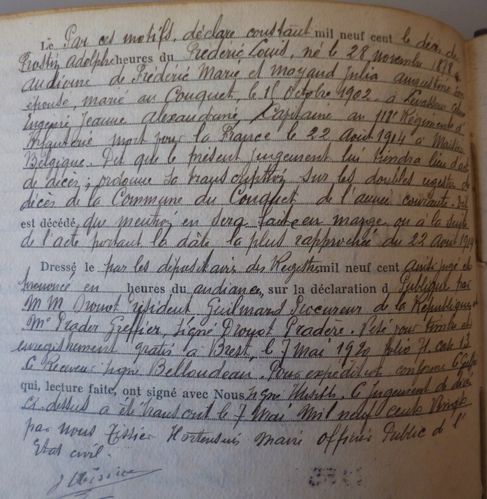 Le Par ces motifs, déclare constant mil neuf cent le décès de
Rostin, Adolphe heures du Frédéric Louis, né le 28 novembre 1878 à
Audierne de Frédéric Marie et Mayaud Julia Augustine son
épouse, marié au Conquet, le 15 Octobre 1902 à
Eugénie Jeanne Alexandrine, Capitaine au 118e Régiment d'
Infanterie mort pour la France le 22 Août 1914 à Maissin
Belgique. Dit que le présent jugement lui tiendra lieu d'acte
de décès; ordonne sa transcription sur les doubles registres de
décès de la Commune du Conquet de l'année courante. Dit
est décédé que mention en sera faite en marge ou à la suite
de l'acte portant la date la plus rapprochée du 22 Août 1914
Dressé le par les dépositaires des Registres mil neuf cent ainsi jugé et
prononcé en heures du audience, sur la déclaration d Publique par
M M Drouot président, Guilmard Procureur de la République et
Me Prader Greffier, Signé Drouot Pradère.
enregistrement gratis à Brest, le 7 Mai 1920 folio 71 case 13
Receveur signé Belloudeau. Pour expédition conforme
qui, lecture faite, ont signé avec Nous, signé le jugement de décès
ci-dessus a été transcrit le 7 Mai Mil neuf cent vingt
par nous Tissier Hortensius Maire Officier Public de l'
Etat civil.